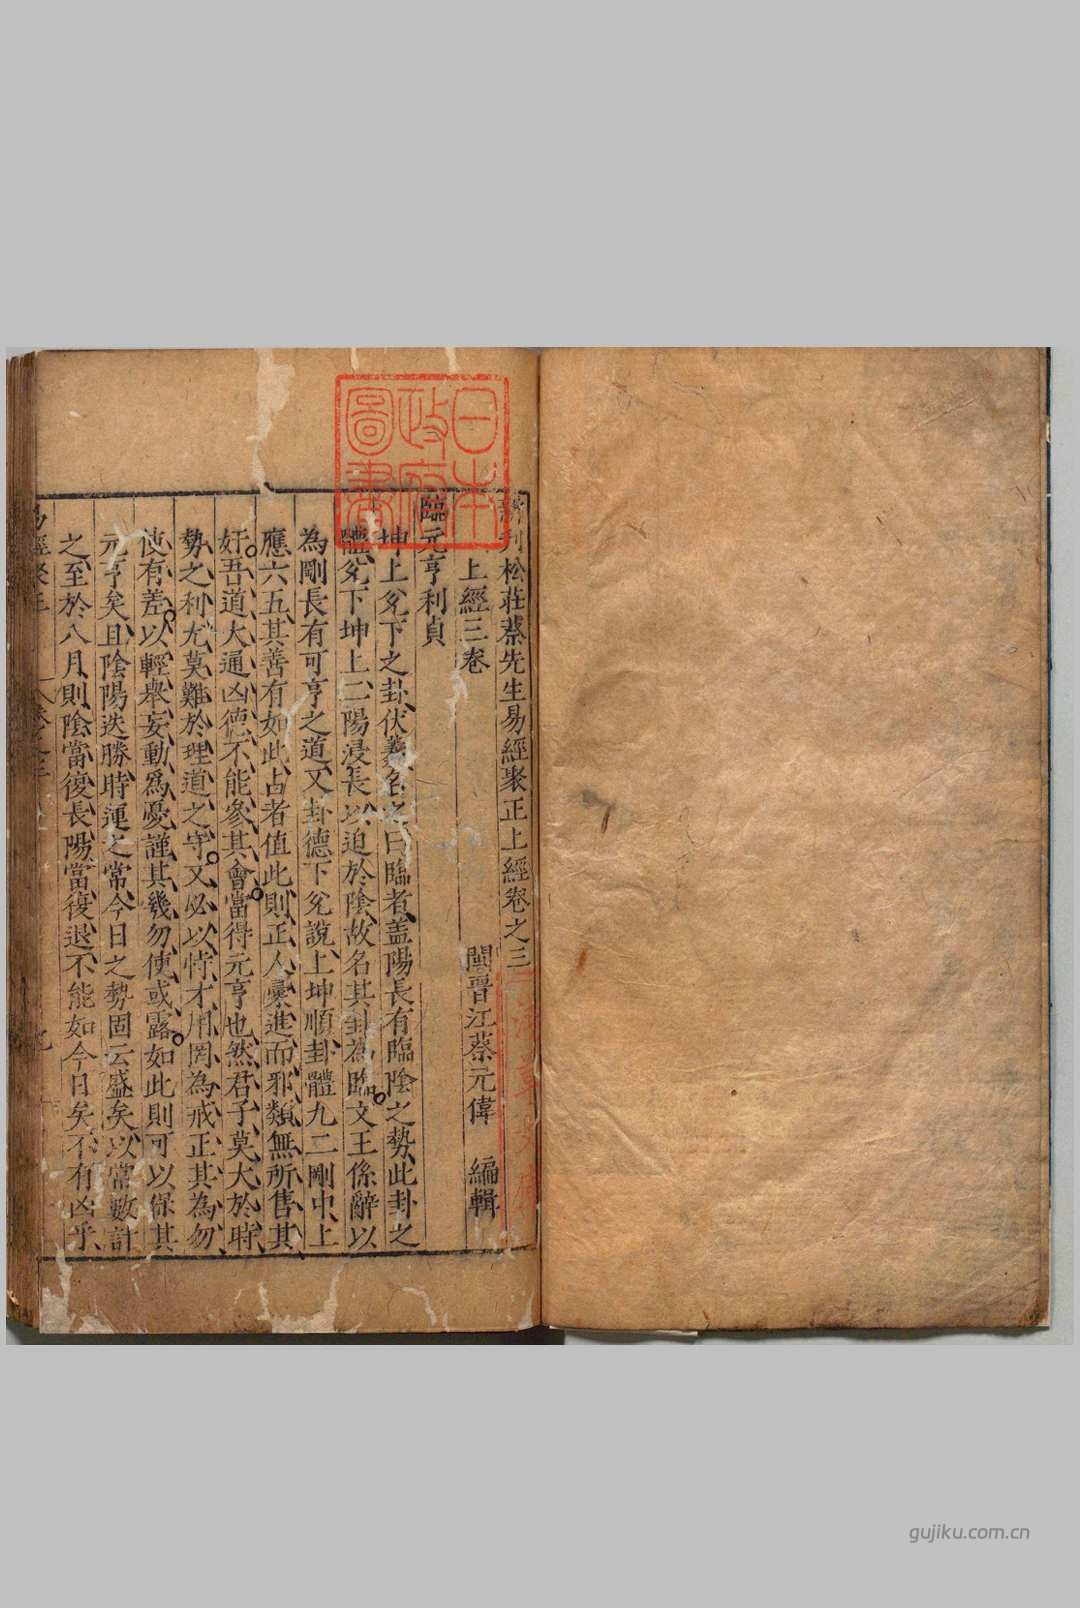 新刋松莊蔡先生易經聚正上經卷之三
上經三卷
閩晋江蔡元偉 編輯
臨元亨利貞
坤上兊下之卦伏羲名之曰臨者盖陽長有臨陰之勢此卦之
體兊下坤上二陽浸長以迫於陰故名其卦為臨文王係辭以
為剛長有可亨之道又卦德下兊說上坤順卦體九二剛中上
應六五其善有如此占者值此則正人彚進而邪類無所售其
奸吾道大通凶德不能參其會當得元亨也然君子莫大於時
勢之利尤莫難於理道之守又必以恃才用罔為戒正其為勿
使有差以輕舉妄動爲憂謹其幾勿使或露如此則可以保其
元亨矣且陰陽迭勝時運之常今日之勢固云盛矣以常數計
之至於八月則陰當復長陽當復退不能如今日矣不有凶乎
易經聚正
卷之三
日本政府圖書
gujiku.com.cn